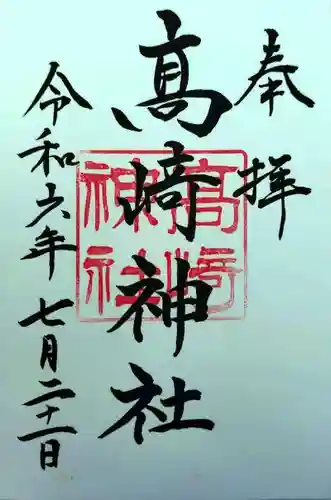 奉拝
髙崎神社
髙崎
神社
令和六年七月二十一日